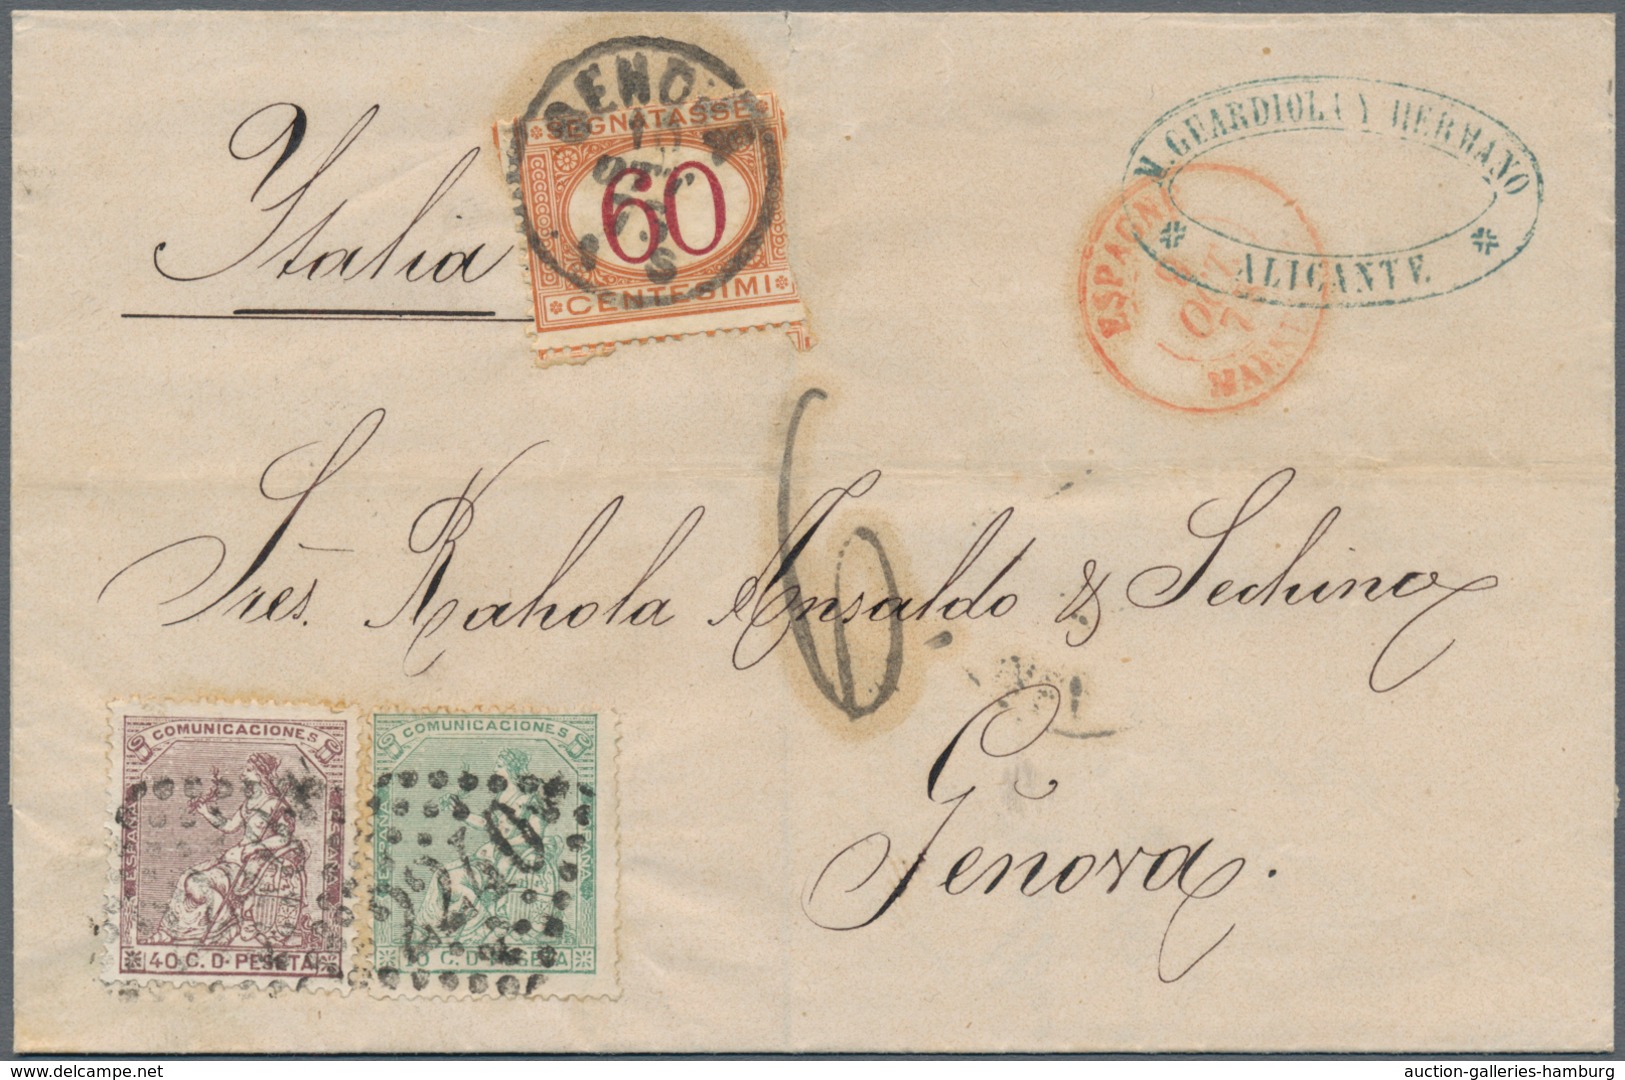 GENOVA
10
OTT
73
S
SEGNATASSE
60
CENTESIMI
M. GUARDIOLA Y HERMANO
ALICANTE
ESPAGNE
OCT
Italia
6
Sres. Rahola Ansaldo & Sechino
Genova.
COMUNICACIONES
ESPAÑA
40 C. D. PESETA
COMUNICACIONES
ESPAÑA
10 C. D. PESETA
2240
www.delcampe.net
auction-galleries-hamburg